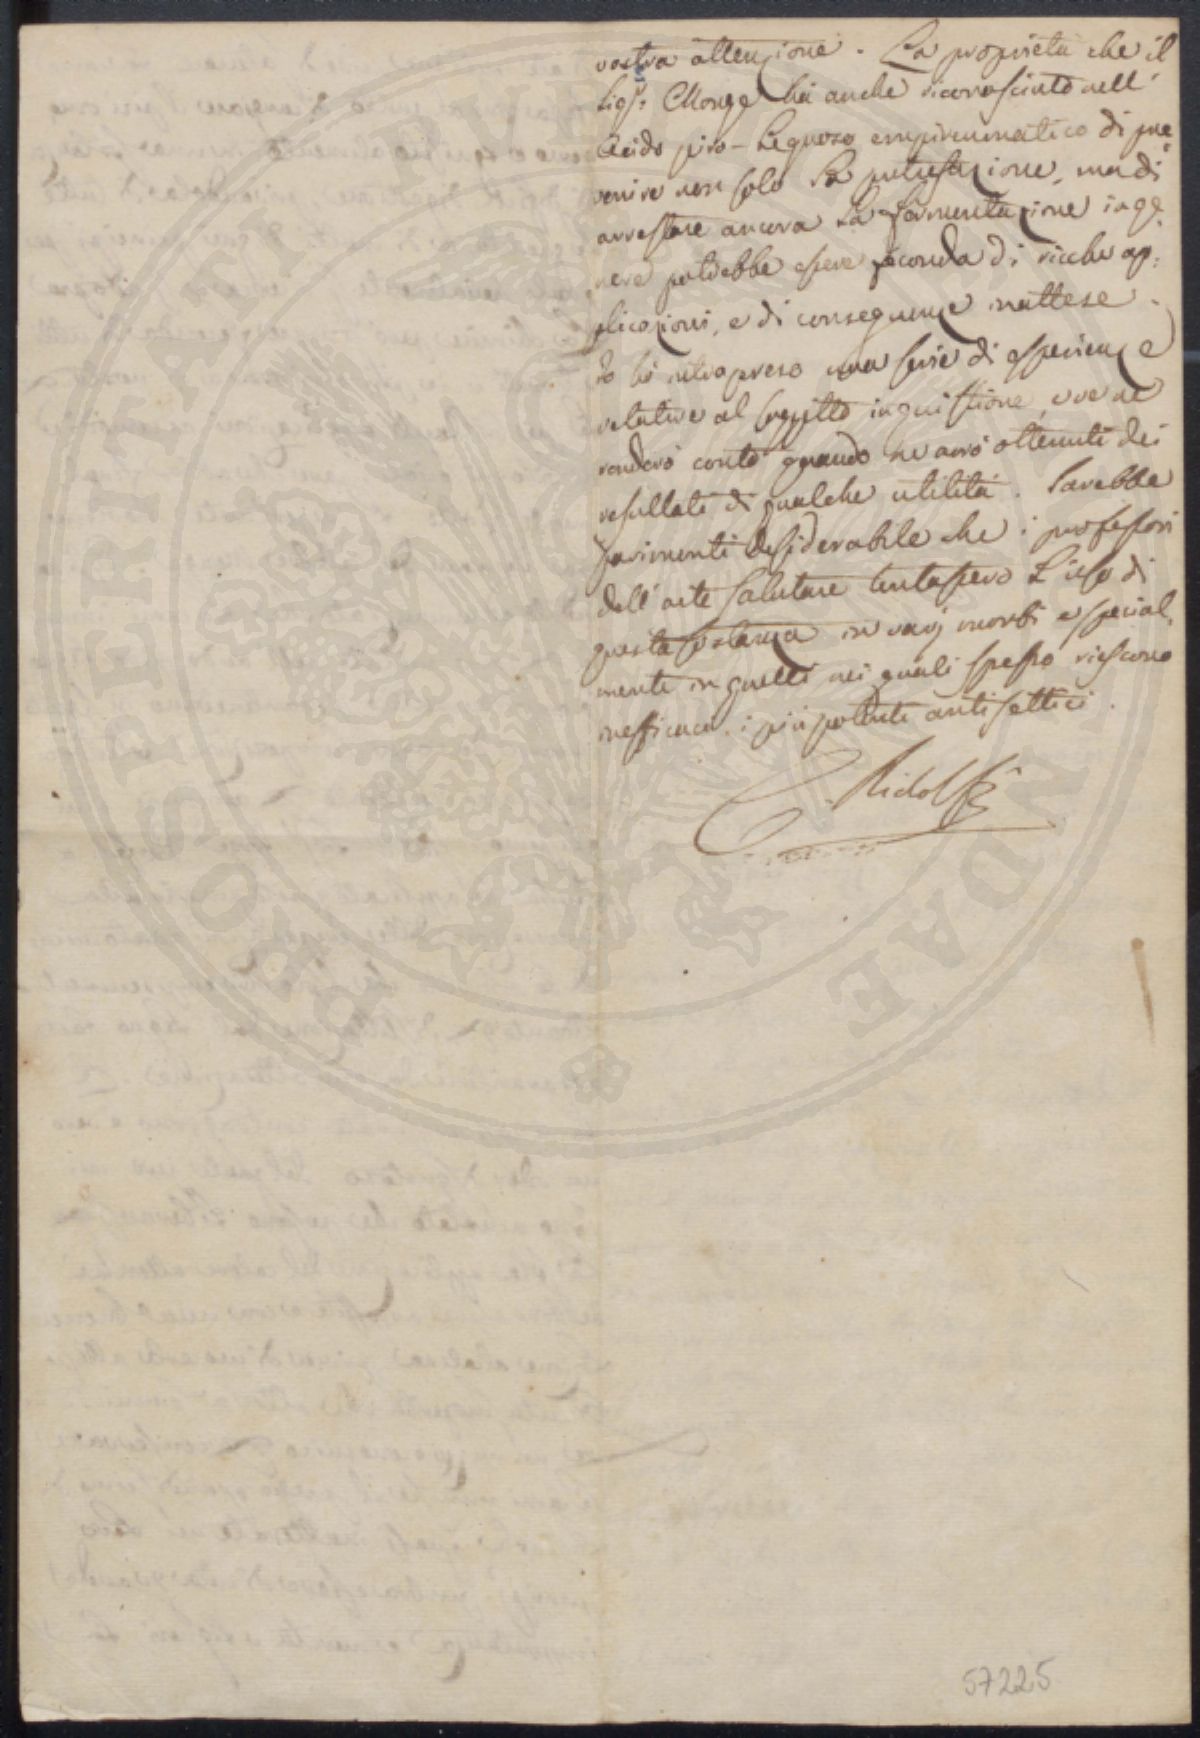 vostra attenzione. La proprietà che il
Sigr. Monge ha anche riconosciuto nell'
Acido piro-Legnoso empireumatico di pre=
venire non solo la putrefazione, ma di
arrestare ancora la fermentazione in ge=
nere potrebbe essere feconda di ricche ap=
plicazioni, e di conseguenze inattese.
Io hò intrapreso una serie di esperienze
relative al soggetto in quistione, e ve ne
renderò conto quando ne avrò ottenuti dei
resultati di qualche utilità. Sarebbe
parimenti desiderabile che i professori
dell'arte salutare tentassero l'uso di
questa sostanza in varj morbi e special=
mente in quelli nei quali spesso riescono
inefficaci i più potenti antisettici.
C. Ridolfi
57225
PROSPERITATI PVBLICAE